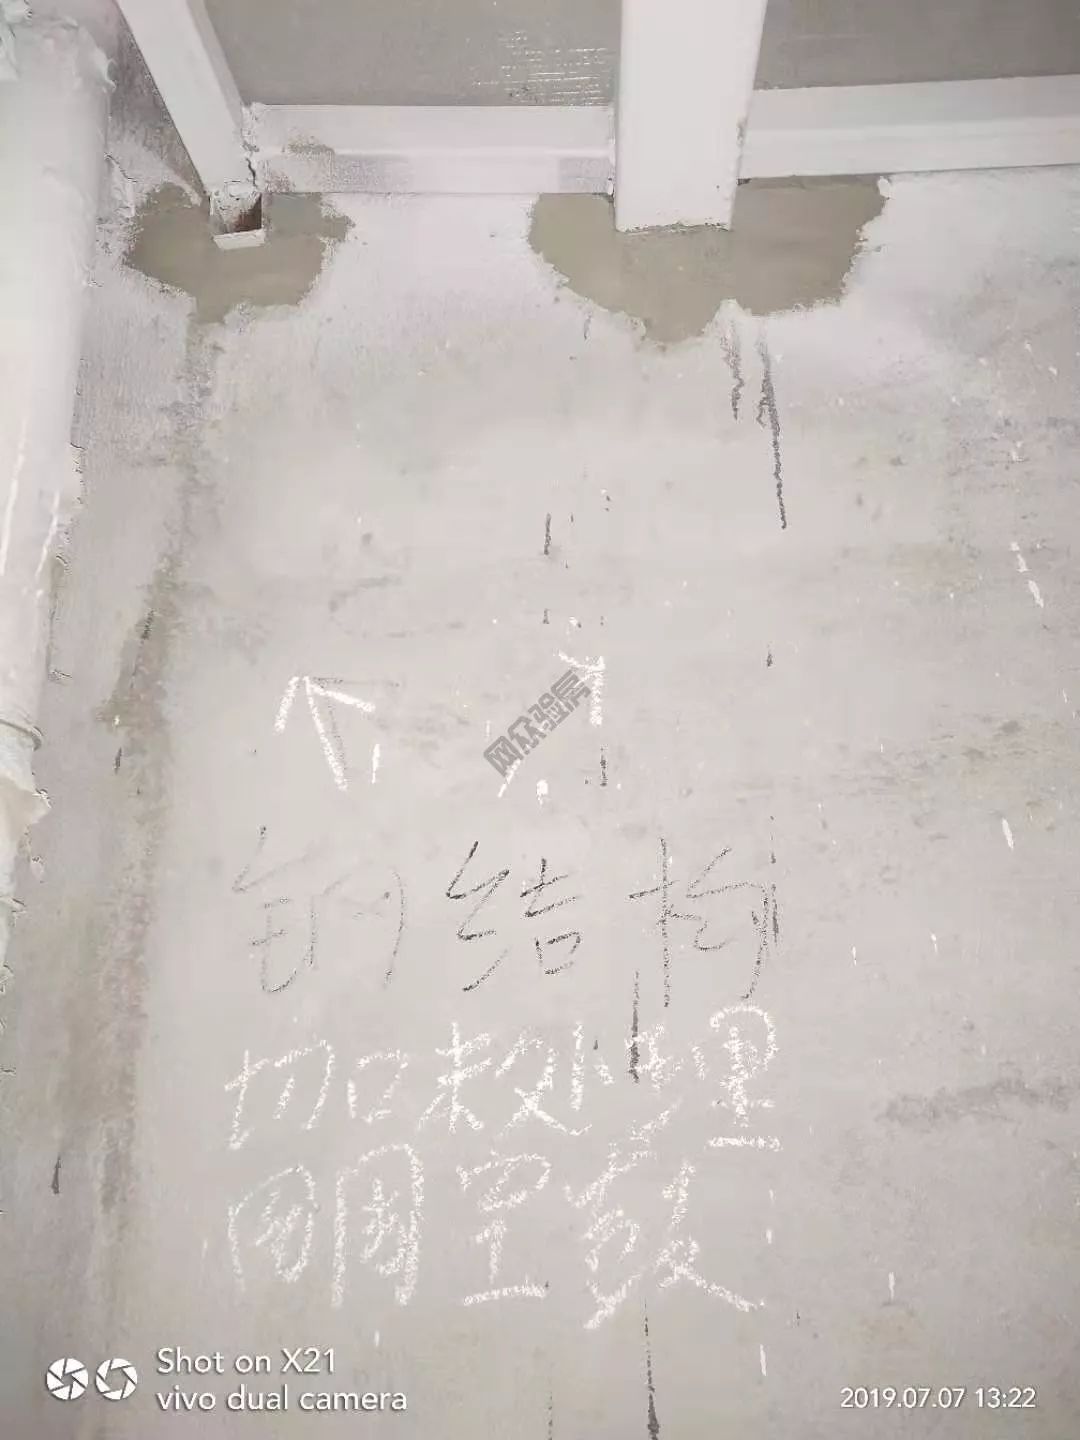 网众验房
钢结构
切口未处理
周围空鼓
Shot on X21
vivo dual camera
2019.07.07 13:22